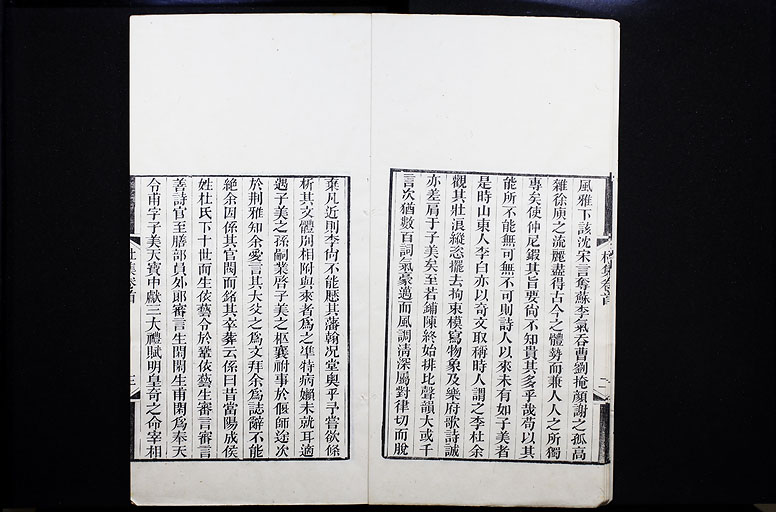 風雅下該沈宋言奪蘇李氣吞曹劉掩顏謝之孤高
雜徐庾之流麗盡得古今之體勢而兼人人之所獨
專矣使仲尼鍛其旨要尙不知貴其多乎哉苟以其
能所不能無可無不可則詩人以來未有如子美者
是時山東人李白亦以奇文取稱時人謂之李杜余
觀其壯浪縱恣擺去拘束模寫物象及樂府歌詩誠
亦差肩于子美矣至若鋪陳終始排比聲韻大或千
言次猶數百詞氣豪邁而風調清深屬對律切而脫
棄凡近則李尙不能歷其藩翰况堂奧乎予嘗欲條
析其文體別相附與來者爲之凖特病嬾未就耳適
遇子美之孫嗣業啓子美之柩襄祔事於偃師途次
於荆雅知余愛言其大父之爲文拜余爲誌辭不能
絶余因係其官閥而銘其卒葬云係曰昔當陽成侯
姓杜氏下十世而生依藝令於鞏依藝生審言審言
善詩官至膳部員外郞審言生閑閑生甫閑爲奉天
令甫字子美天寶中獻三大禮賦明皇奇之命宰相
杜集卷首
三